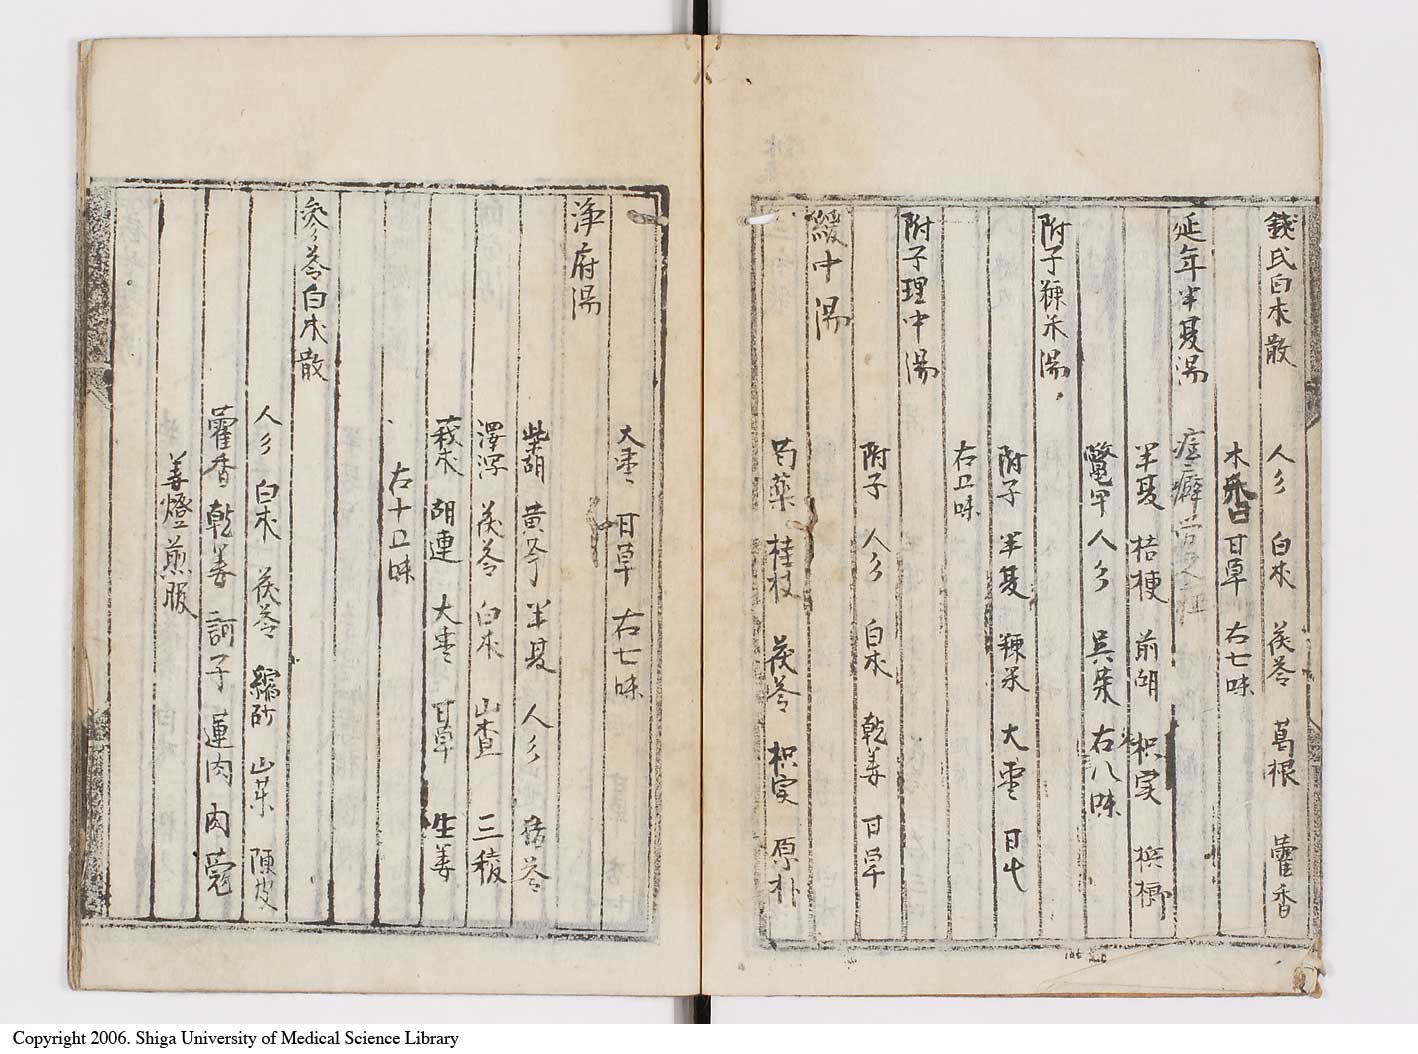 錢氏白朮散
人參 白朮 茯苓 葛根 藿香
木香 甘草 右七味
延年半夏湯
半夏 桔梗 前胡 枳実 檳榔
鱉甲 人參 呉茱 右八味
附子粳米湯
附子 半夏 粳米 大棗 甘草
右五味
附子理中湯
附子 人參 白朮 乾姜 甘草
緩中湯
芍薬 桂枝 茯苓 枳実 厚朴
大棗 甘草 右七味
浄府湯
柴胡 黄芩 半夏 人參 猪苓
澤瀉 茯苓 白朮 山査 三稜
莪朮 胡連 大棗 甘草 生姜
右十五味
參苓白朮散
人參 白朮 茯苓 縮砂 山薬 陳皮
藿香 乾姜 訶子 蓮肉 肉蔲
姜燈煎服
Copyright 2006. Shiga University of Medical Science Library